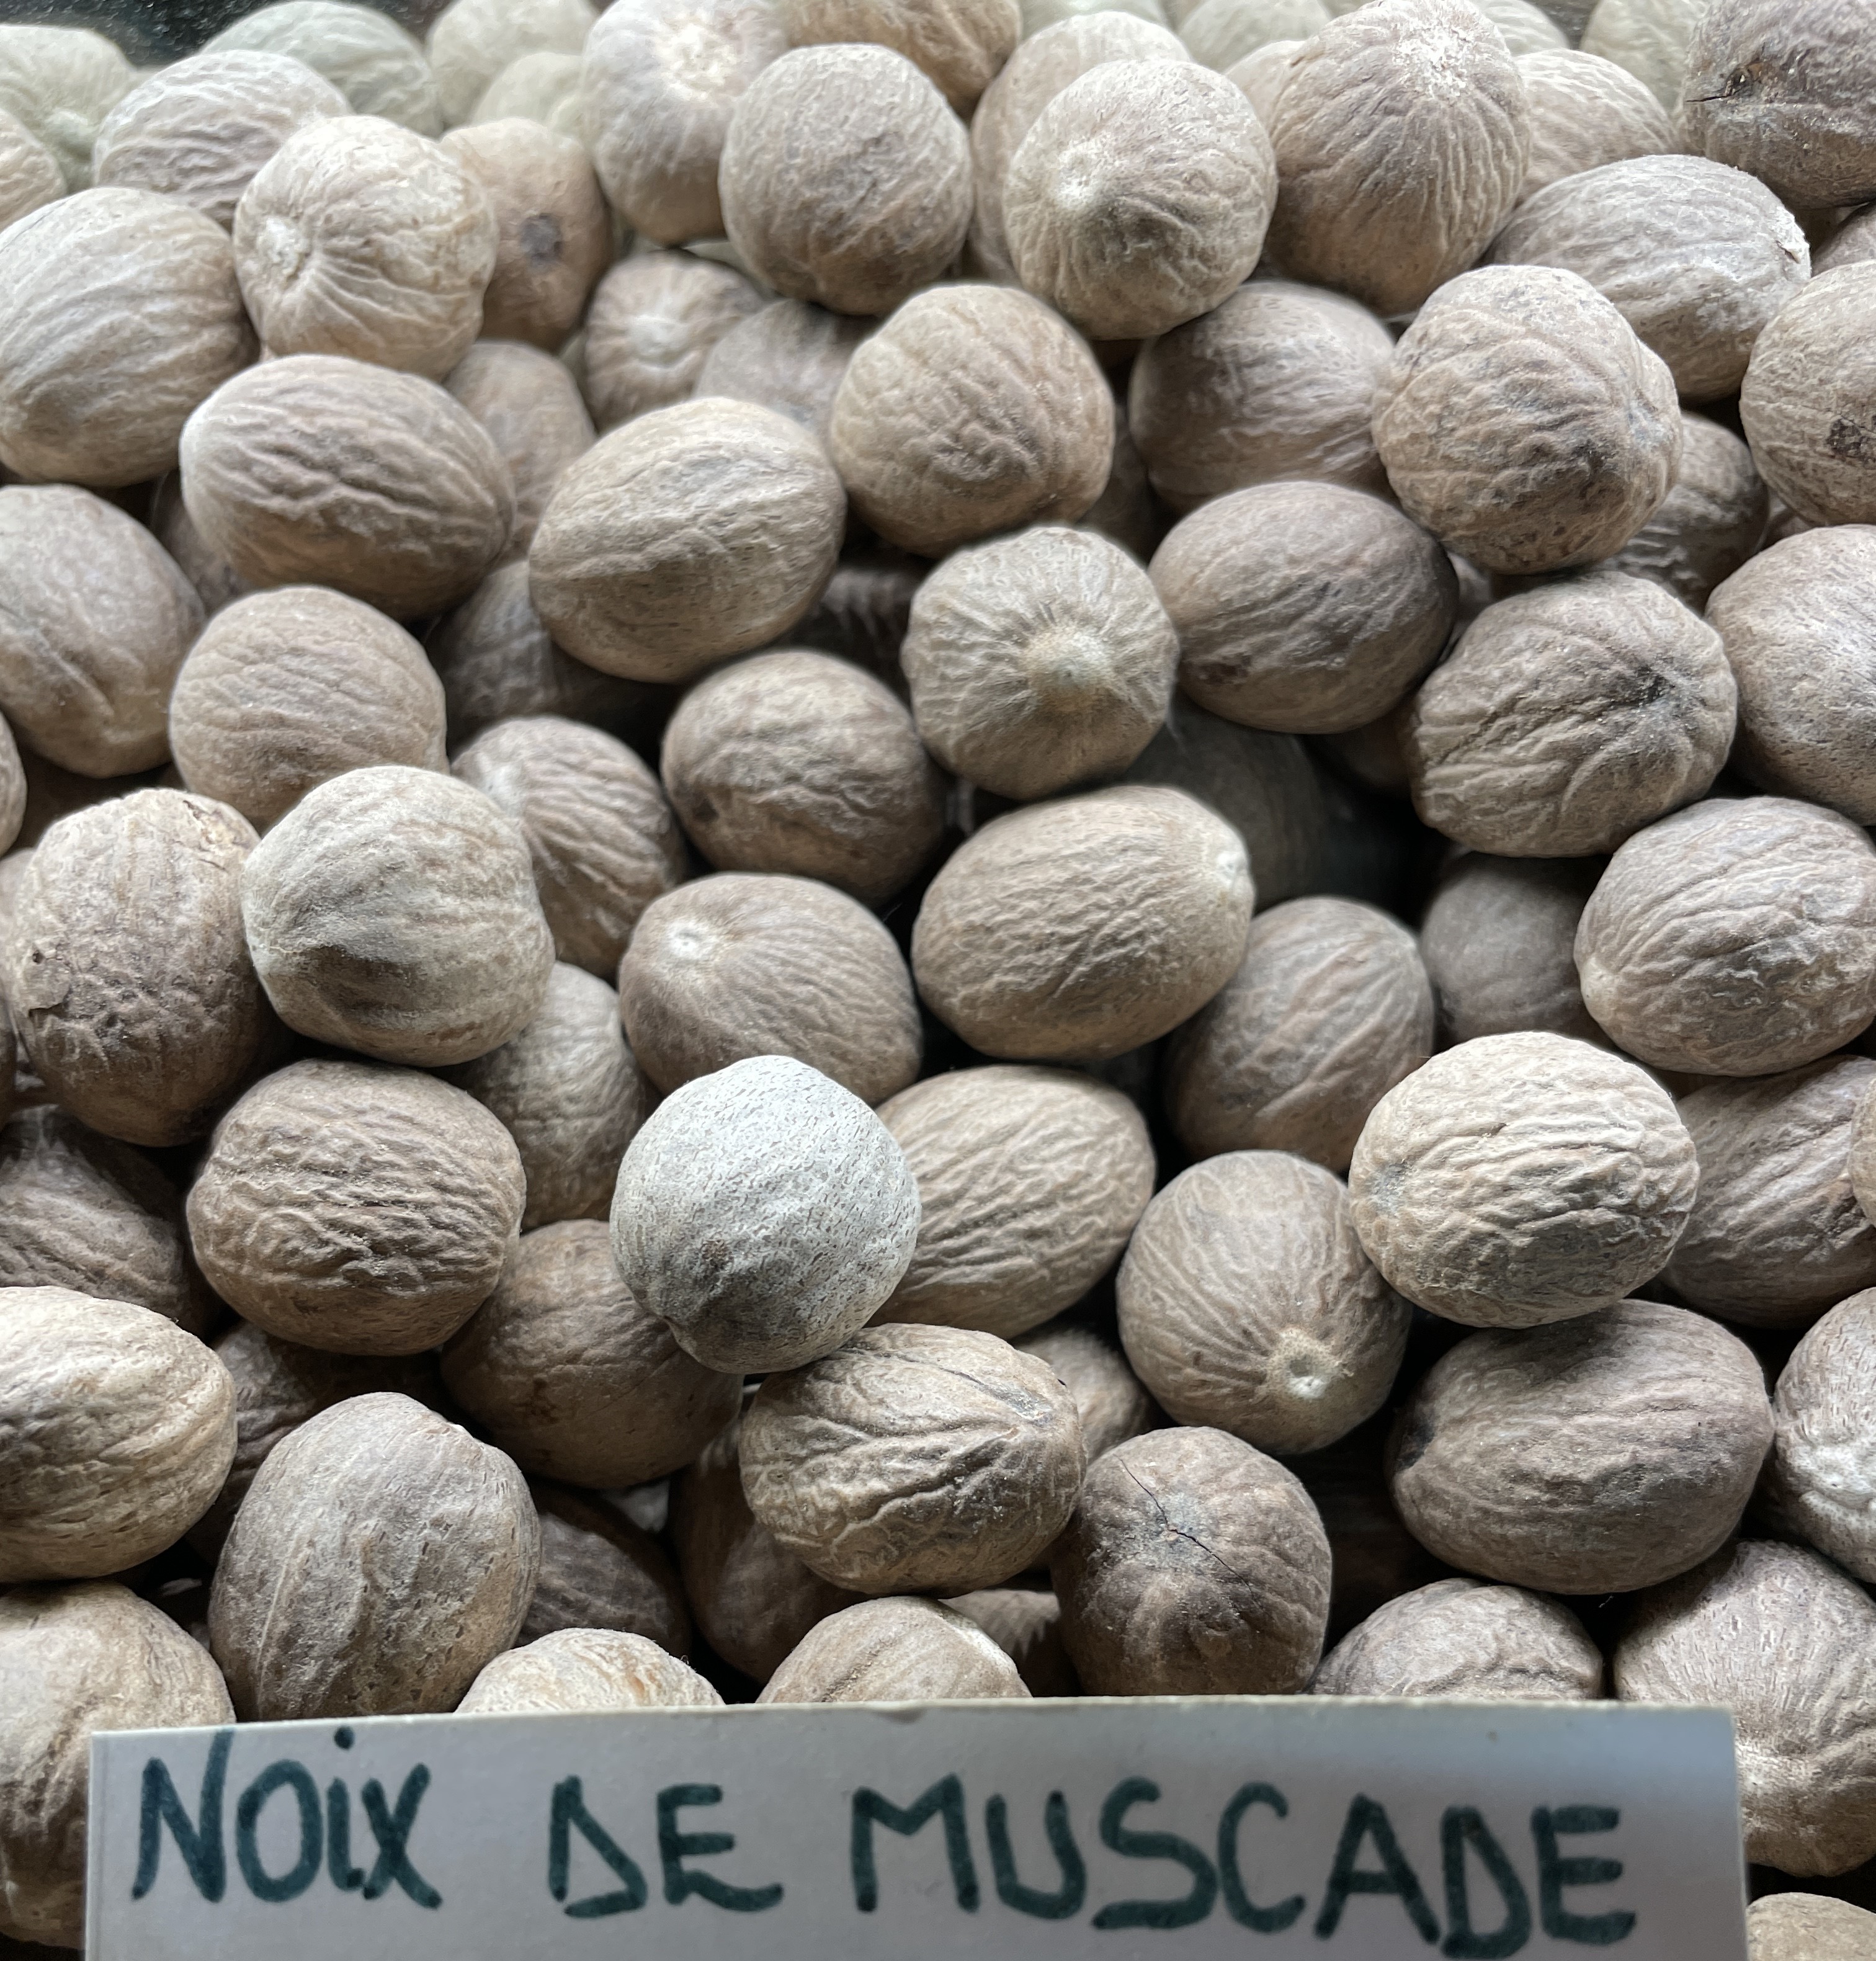 NOiX DE MUSCADE